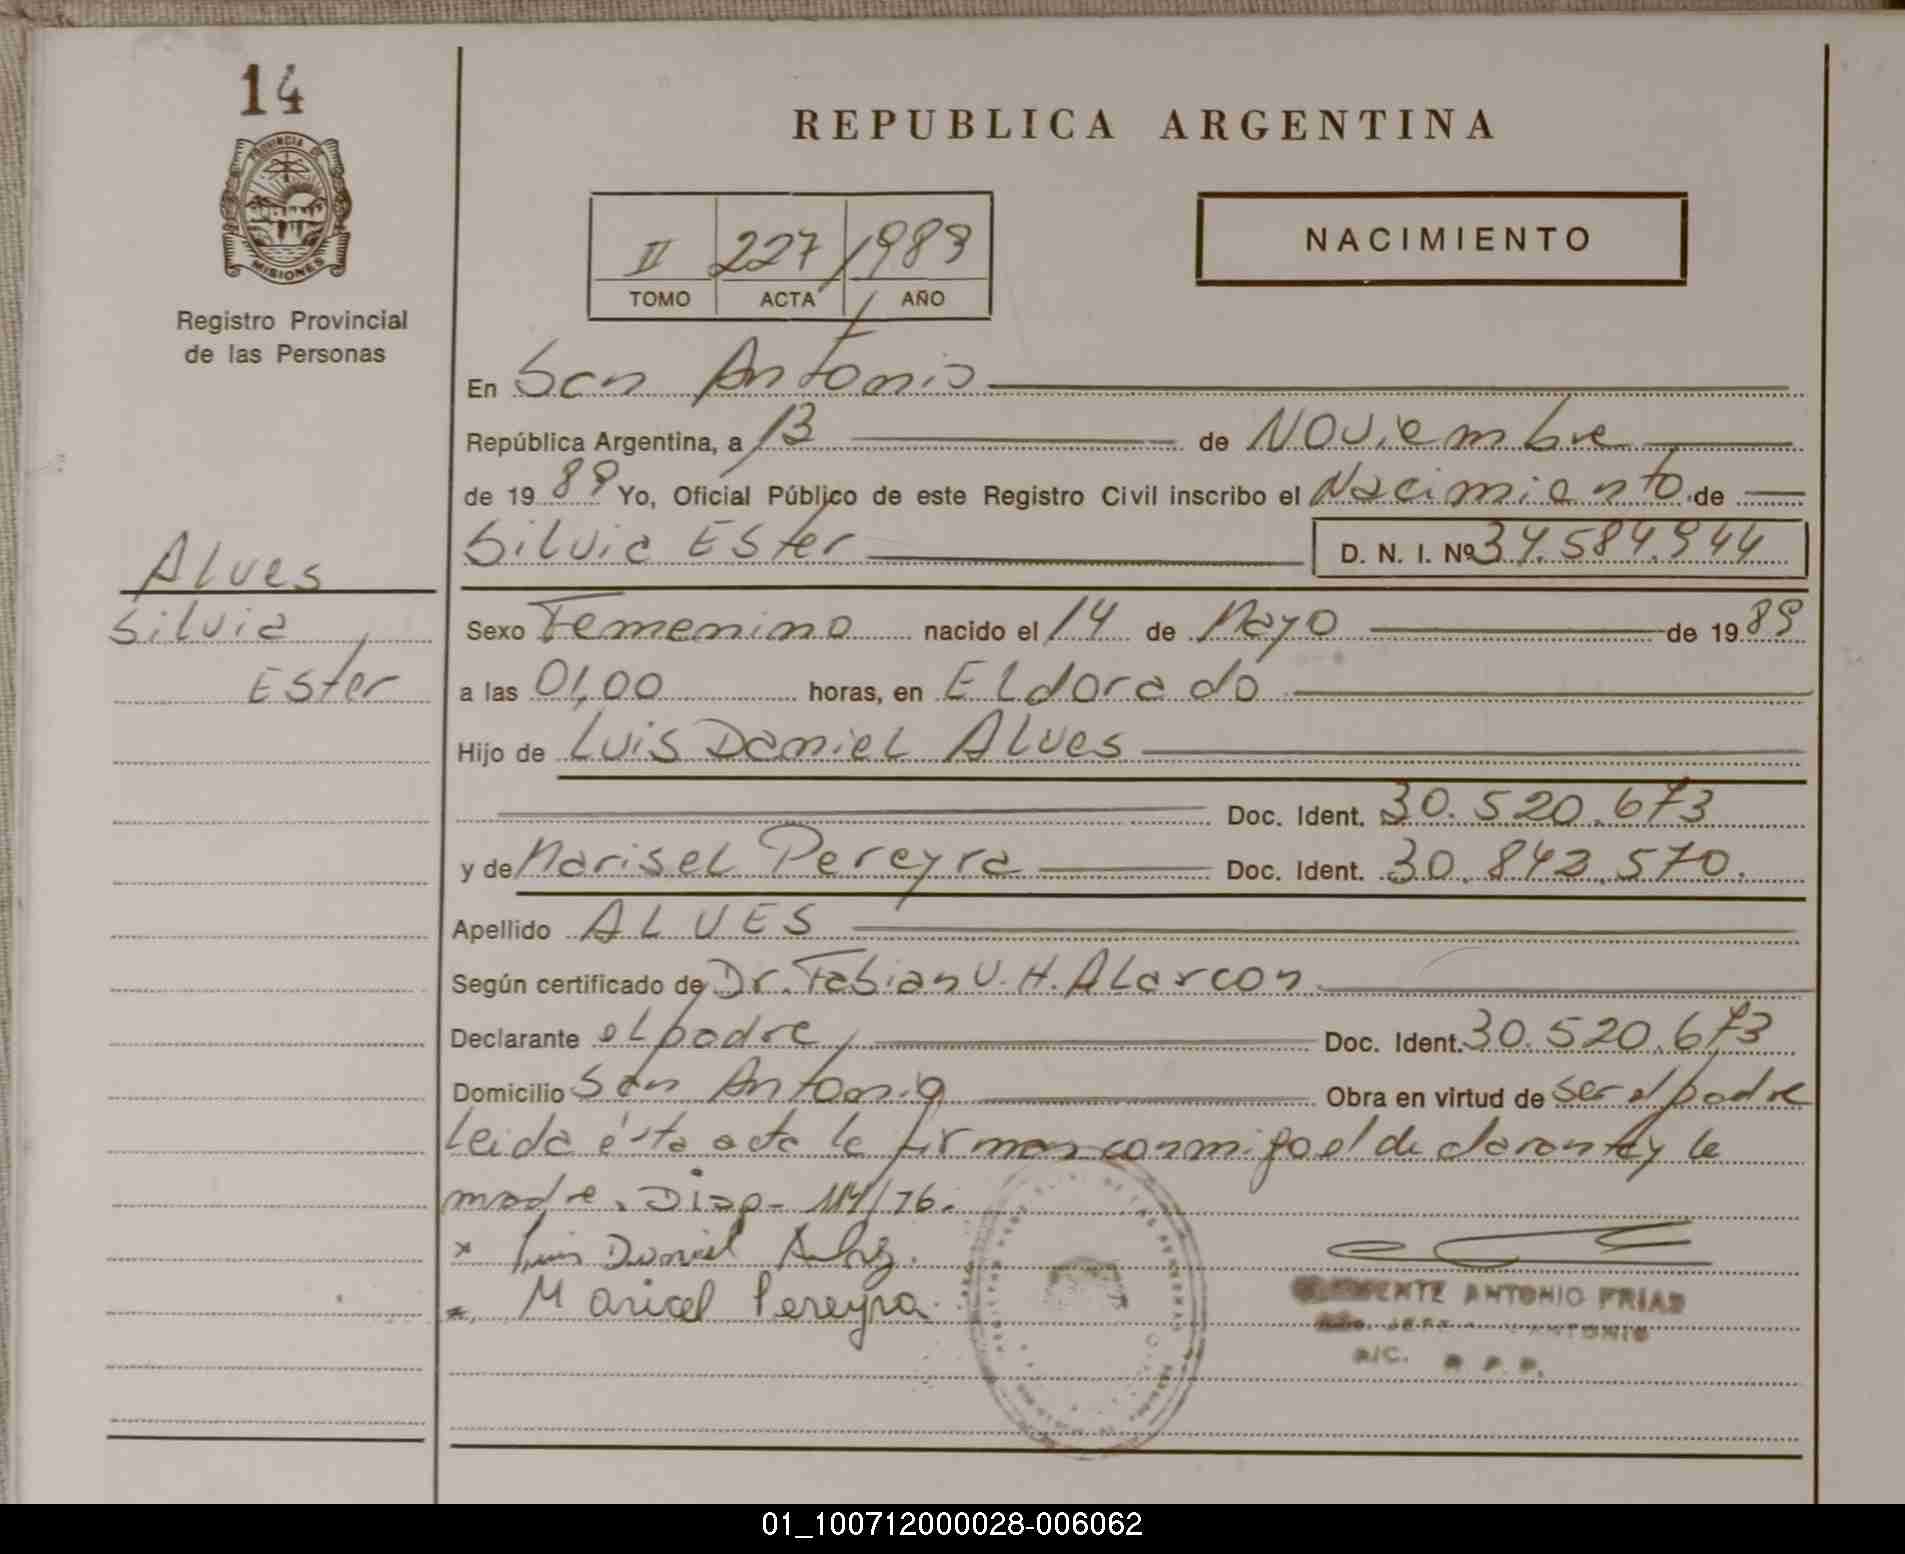 14
PROVINCIA DE
MISIONES
Registro Provincial
de las Personas
REPUBLICA ARGENTINA
II 227 1989
TOMO ACTA AÑO
NACIMIENTO
En San Antonio
República Argentina, a 13 de Noviembre
de 19 89 Yo, Oficial Público de este Registro Civil inscribo el Nacimiento de
Silvia Ester D. N. I. Nº 34.584.944
Alves
Silvia
Ester
Sexo Femenino nacido el 14 de Mayo de 19 89
a las 01,00 horas, en Eldorado
Hijo de Luis Daniel Alves
Doc. Ident. 30.520.673
y de Marisel Pereyra Doc. Ident. 30.842.570.
Apellido ALVES
Según certificado de Dr. Fabian V. H. Alarcon
Declarante el padre Doc. Ident. 30.520.673
Domicilio San Antonio Obra en virtud de ser el padre
leida ésta acta la firman conmigo el declarante y la
madre. Disp- 114/76.
x Luis Daniel
Maricel Pereyra
ANTONIO FRIAS
ANTONIO
A/C. R. P. P.
01_100712000028-006062